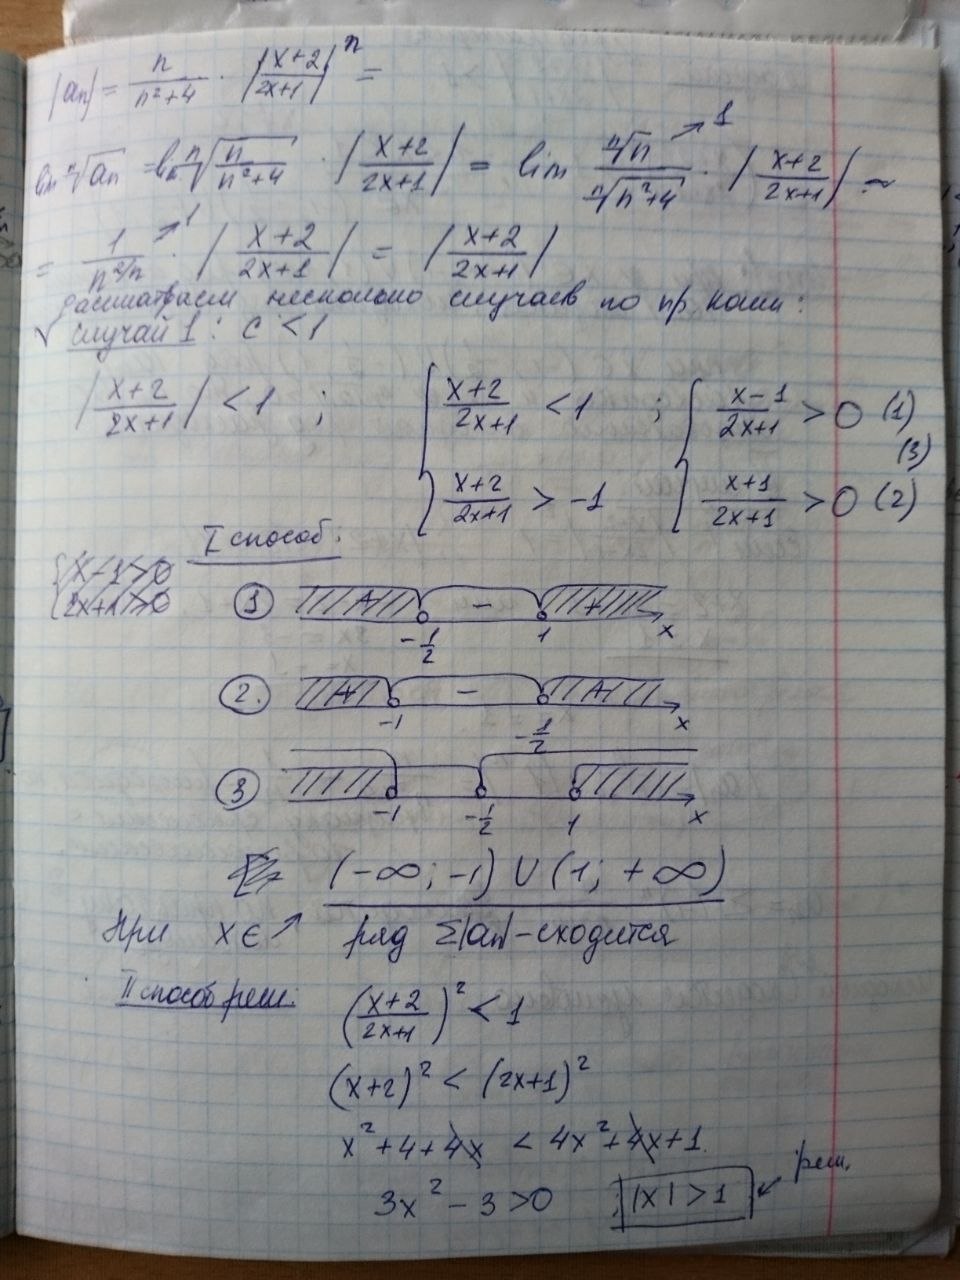 |an| = n/(n²+4) · |(x+2)/(2x+1)|ⁿ =
lim ⁿ√an = lim ⁿ√(n/(n²+4)) · |(x+2)/(2x+1)| = lim ⁿ√n ↗1 / ⁿ√(n²+4) · |(x+2)/(2x+1)| ~
= 1/n^(2/n) ↗1 · |(x+2)/(2x+1)| = |(x+2)/(2x+1)|
рассматраем несколько случаев по пр. Коши:
√ случай 1: c < 1
|(x+2)/(2x+1)| < 1 ; { (x+2)/(2x+1) < 1 ; { (x-1)/(2x+1) > 0 (1)
(3)
(x+2)/(2x+1) > -1 (x+1)/(2x+1) > 0 (2)
I способ:
{ x-1>0
2x+1>0
① + - +
-1/2 1 x
②. + - +
-1 -1/2 x
③
-1 -1/2 1 x
(-∞; -1) U (1; +∞)
При x ∈ ↗ ряд Σ|an| - сходится
II способ реш:
((x+2)/(2x+1))² < 1
(x+2)² < (2x+1)²
x² + 4 + 4x < 4x² + 4x + 1.
реш.
3x² - 3 > 0 ; |x| > 1 ↙